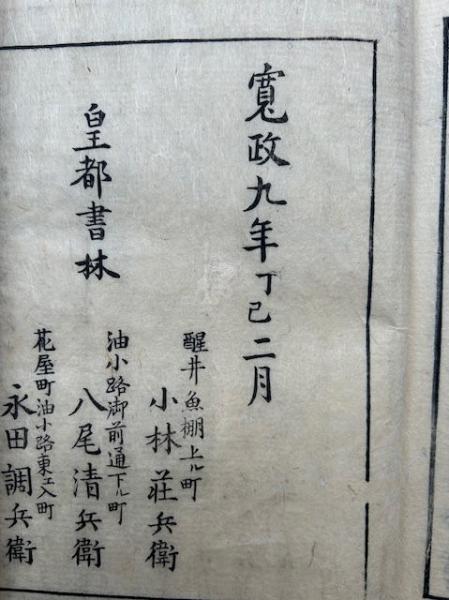 寛政九年丁巳二月
皇都書林
醒井魚棚上ル町
小林荘兵衛
油小路御前通下ル町
八尾清兵衛
花屋町油小路東エ入町
永田調兵衛